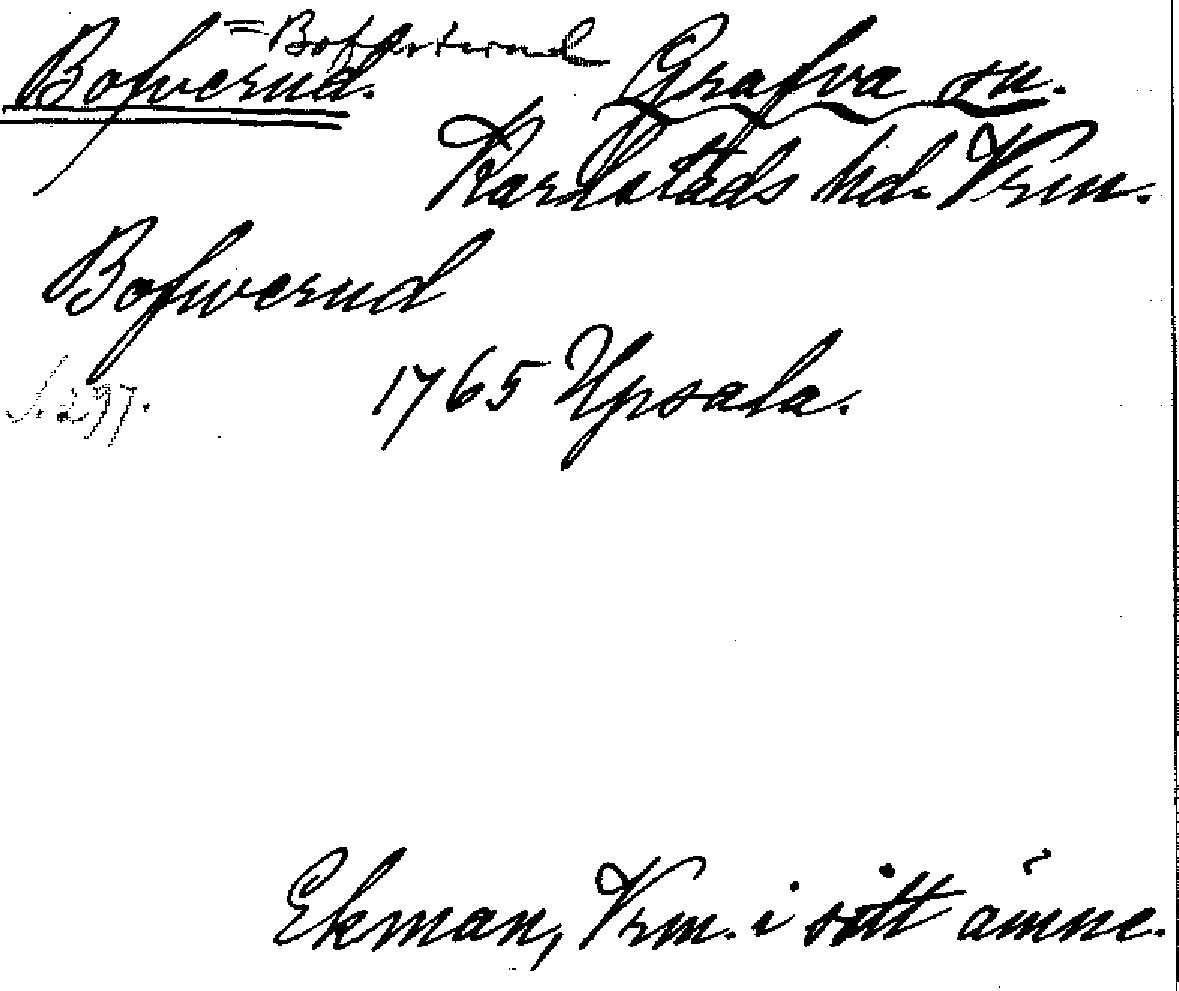 Bofwerud. Grafva sn.
Karlstads hd. Vrm.
Bofwerud
1765 Upsala.
s. 297.
Ekman, Vrm. i sitt ämne.